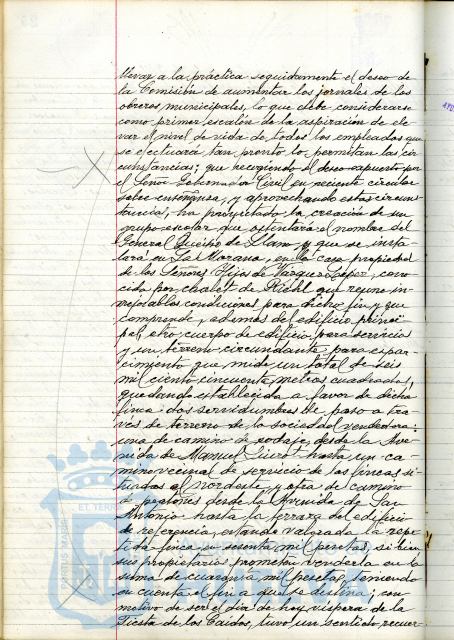 llevar a la práctica seguidamente el deseo de
la Comisión de aumentar los jornales de los
obreros municipales, lo que debe considerarse
como primer escalón de la aspiración de ele-
var el nivel de vida de todos los empleados que
se efectuará tan pronto lo permitan las cir-
cunstancias; que recogiendo el deseo expuesto por
el Señor Gobernador Civil en reciente circular
sobre enseñanza, y aprovechando estas circuns-
tancias, ha proyectado la creación de un
grupo escolar que ostentará el nombre del
General Queipo de Llano y que se insta-
lará en La Morana, en la casa propiedad
de los Señores Hijos de Vázquez López, cono-
cida por chalet de Riehl que reune in-
mejorables condiciones para dicho fin y que
comprende, ademas del edificio princi-
pal, otro cuerpo de edificio para servicios
y un terreno circundante para espar-
cimiento que mide un total de seis
mil ciento cincuenta metros cuadrados,
quedando establecida a favor de dicha
finca dos servidumbres de paso a tra-
vés de terreno de la sociedad vendedora:
una de camino de rodaje, desde la Ave-
nida de Manuel Siurot hasta un ca-
mino vecinal de servicio de las fincas si-
tuadas al nordeste, y otra de camino
de peatones desde la Avenida de San
Antonio hasta la terraza del edificio
de referencia, estando valorada la repe-
tida finca en sesenta mil pesetas, si bien
sus propietarios prometen venderla en la
suma de cuarenta mil pesetas, teniendo
en cuenta el fin a que se destina; con
motivo de ser el día de hoy víspera de la
Fiesta de los Caidos, tuvo un sentido recuer-
PORTUS MARIS
ET TERR